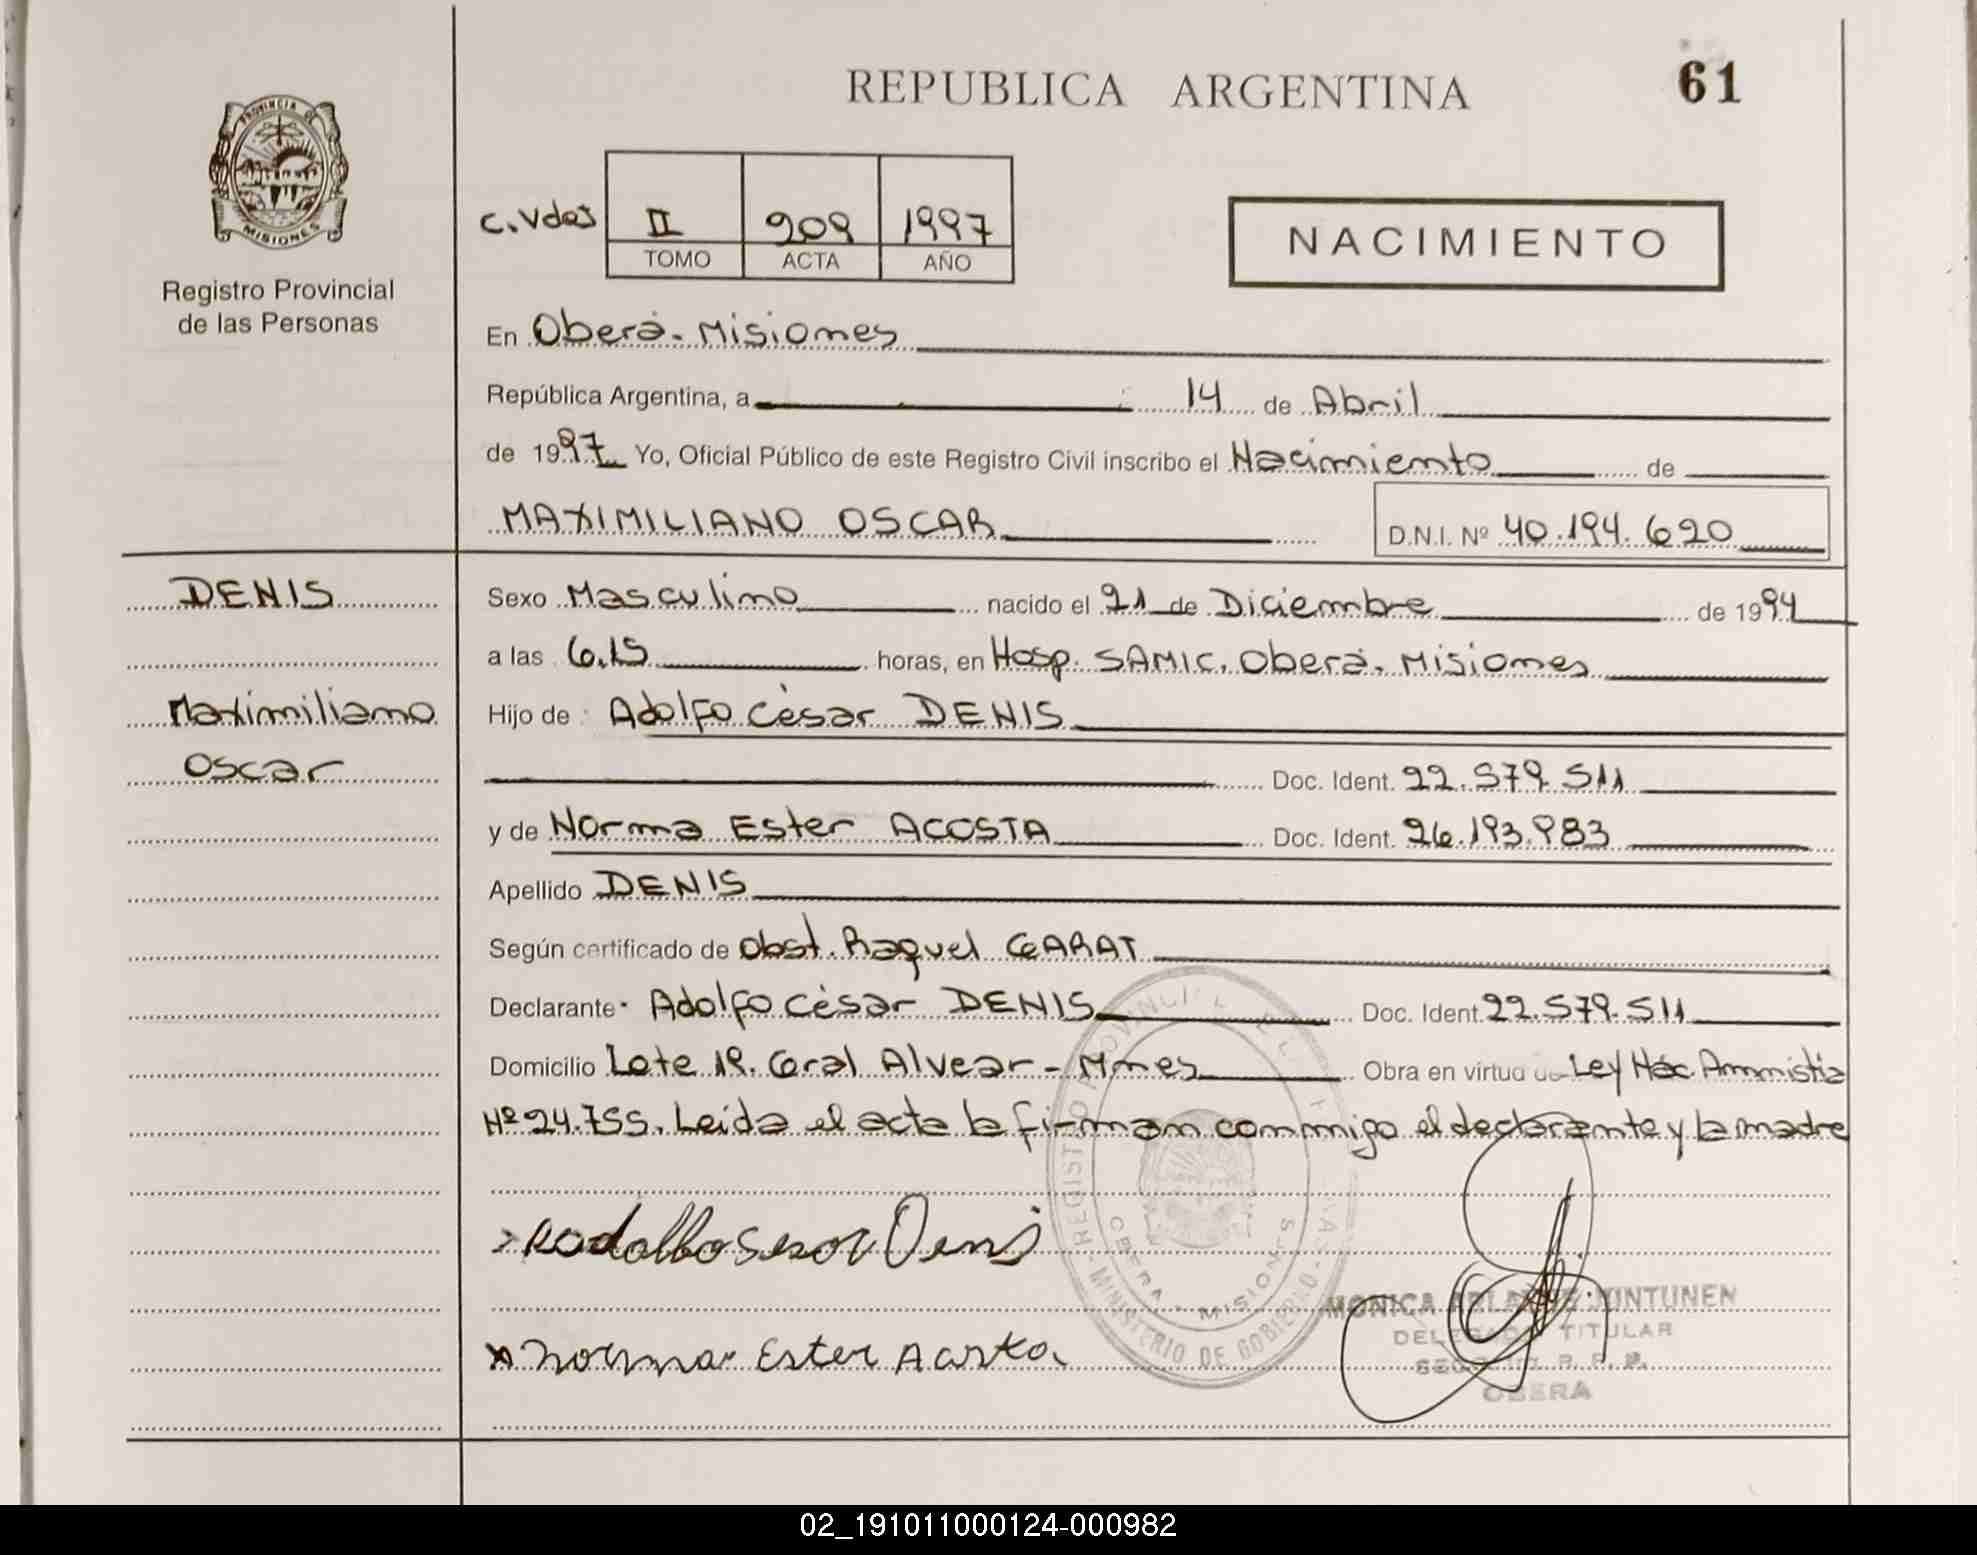 REPUBLICA ARGENTINA
61
PROVINCIA DE MISIONES
Registro Provincial
de las Personas
C. Vdas II 209 1997
TOMO ACTA AÑO
NACIMIENTO
En Oberá - Misiones
República Argentina, a 14 de Abril
de 1997 Yo, Oficial Público de este Registro Civil inscribo el Nacimiento de
MAXIMILIANO OSCAR D.N.I. Nº 40.194.620
DENIS
Maximiliano
Oscar
Sexo Masculino nacido el 21 de Diciembre de 1994
a las 6.15 horas, en Hosp. SAMIC. Oberá. Misiones
Hijo de Adolfo César DENIS
Doc. Ident. 22.579.511
y de Norma Ester ACOSTA Doc. Ident. 26.193.983
Apellido DENIS
Según certificado de Obst. Raquel GARAT
Declarante Adolfo César DENIS Doc. Ident. 22.579.511
Domicilio Lote 19. Gral Alvear - Mnes Obra en virtud de Ley Nac. Amnistia
Nº 24.755. Leida el acta la firman conmigo el declarante y la madre
Denis
Norma Ester Acosta
REGISTRO PROVINCIAL DE LAS PERSONAS - MINISTERIO DE GOBIERNO -
OBERA - MISIONES
MONICA JUNTUNEN
DELEGADA TITULAR
R. P. P.
OBERA
02_191011000124-000982